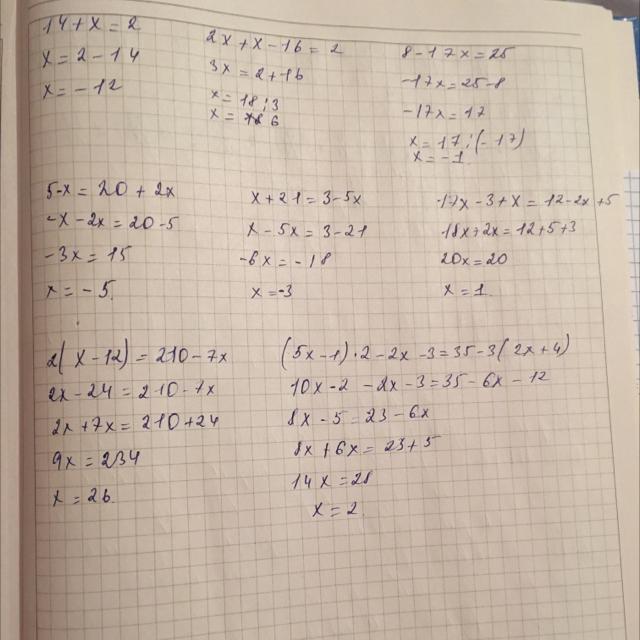 14 + x = 2
x = 2 - 14
x = - 12
2x + x - 16 = 2
3x = 2 + 16
x = 18 : 3
x = 6
8 - 17x = 25
-17x = 25 - 8
-17x = 17
x = 17 : (-17)
x = -1
5 - x = 20 + 2x
-x - 2x = 20 - 5
-3x = 15
x = - 5
x + 21 = 3 - 5x
x - 5x = 3 - 21
-6x = - 18
x = -3
-17x - 3 + x = 12 - 2x + 5
18x + 2x = 12 + 5 + 3
20x = 20
x = 1
2( x - 12) = 210 - 7x
2x - 24 = 210 - 7x
2x + 7x = 210 + 24
9x = 234
x = 26
(5x - 1) · 2 - 2x - 3 = 35 - 3( 2x + 4)
10x - 2 - 2x - 3 = 35 - 6x - 12
8x - 5 = 23 - 6x
8x + 6x = 23 + 5
14x = 28
x = 2